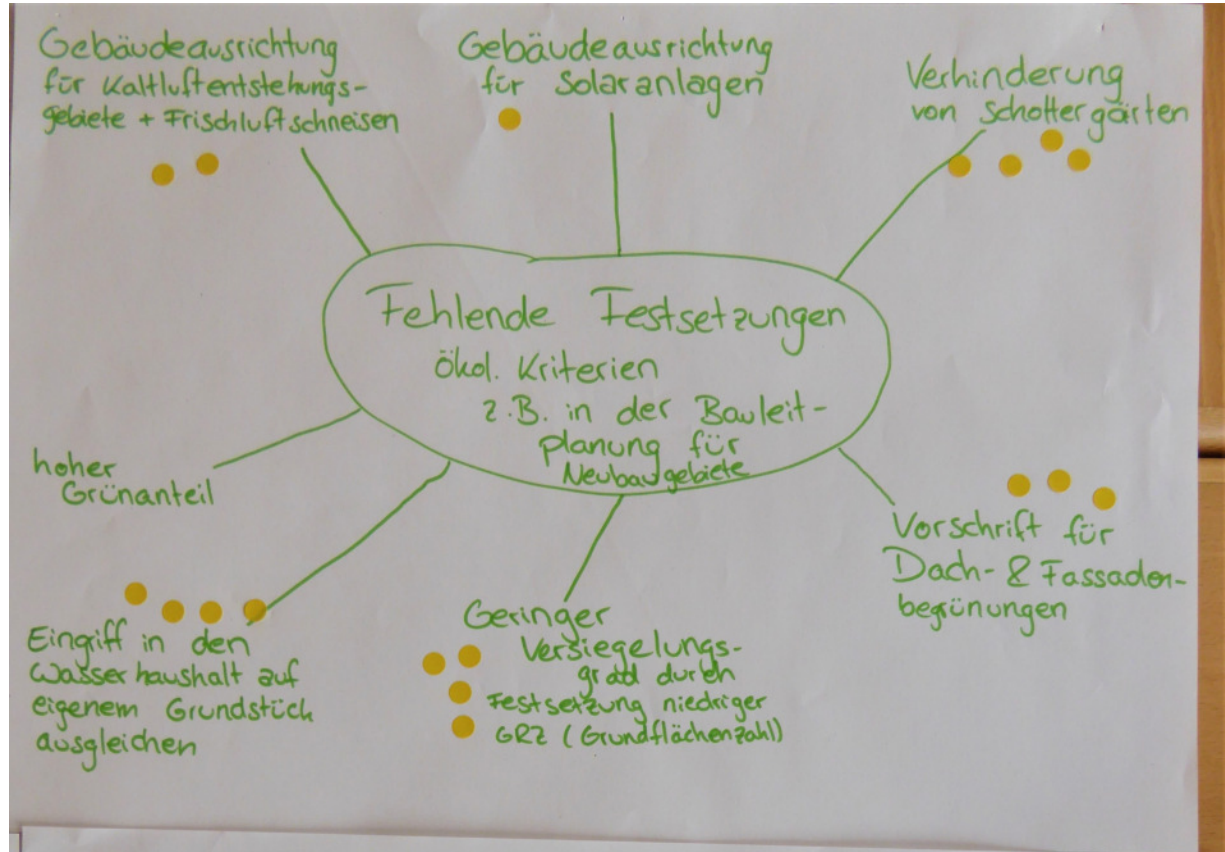 Gebäudeausrichtung
für Kaltluftentstehungs-
gebiete + Frischluftschneisen
Gebäudeausrichtung
für Solaranlagen
Verhinderung
von Schottergärten
Fehlende Festsetzungen
ökol. Kriterien
z.B. in der Bauleit-
planung für
Neubaugebiete
hoher
Grünanteil
Vorschrift für
Dach- & Fassaden-
begrünungen
Eingriff in den
Wasserhaushalt auf
eigenem Grundstück
ausgleichen
Geringer
Versiegelungs-
grad durch
Festsetzung niedriger
GRZ (Grundflächenzahl)